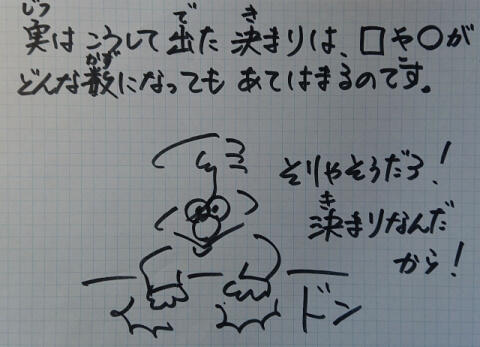 実はこうして出た決まりは、□や○が
どんな数になってもあてはまるのです。
そりゃそうだろ!
決まりなんだ
から!
ドン